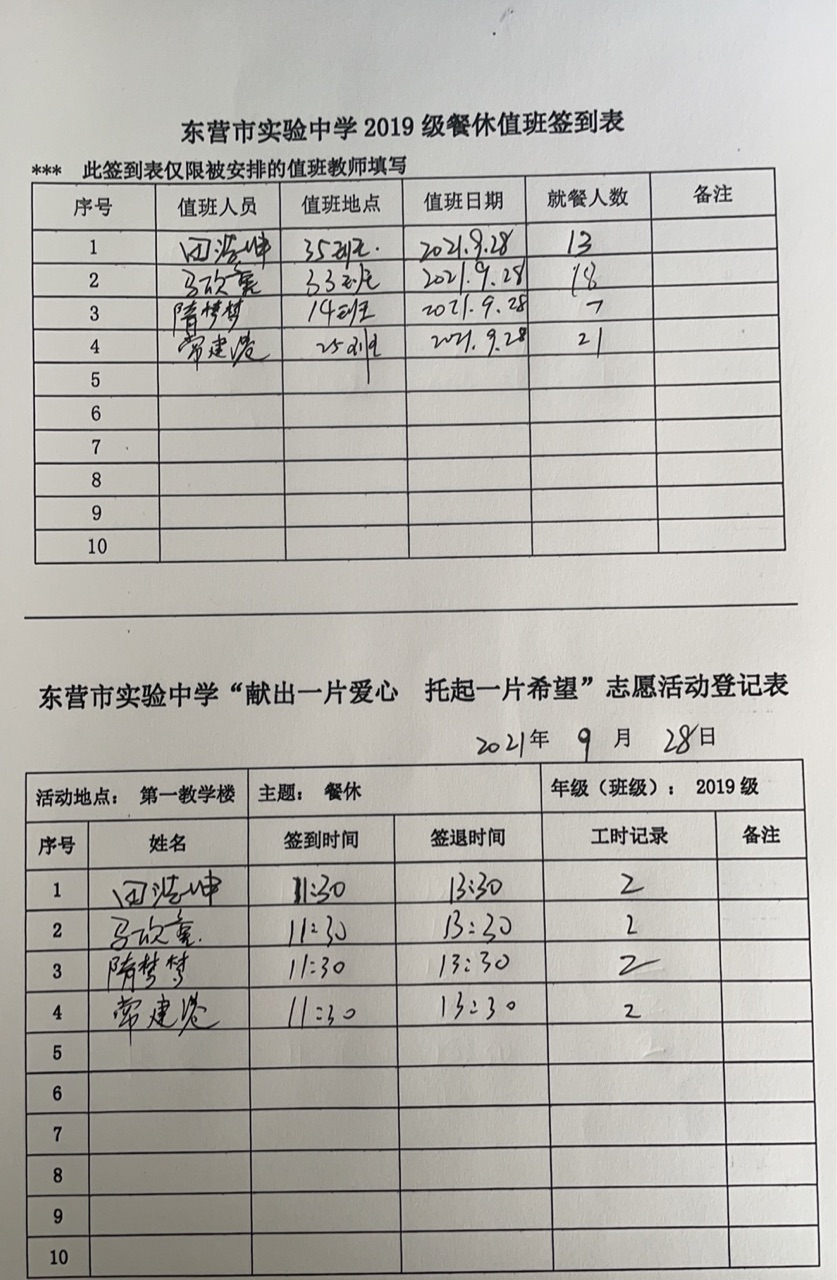 东营市实验中学 2019 级餐休值班签到表
*** 此签到表仅限被安排的值班教师填写
序号 值班人员 值班地点 值班日期 就餐人数 备注
1 田浩坤 35班 2021.9.28 13
2 马欣 33班 2021.9.28 18
3 隋梦梦 14班 2021.9.28 7
4 常建港 25班 2021.9.28 21
5
6
7
8
9
10
东营市实验中学“献出一片爱心 托起一片希望”志愿活动登记表
2021年 9 月 28日
活动地点: 第一教学楼 主题: 餐休 年级(班级): 2019 级
序号 姓名 签到时间 签退时间 工时记录 备注
1 田浩坤 11:30 13:30 2
2 马欣 11:30 13:30 2
3 隋梦梦 11:30 13:30 2
4 常建港 11:30 13:30 2
5
6
7
8
9
10